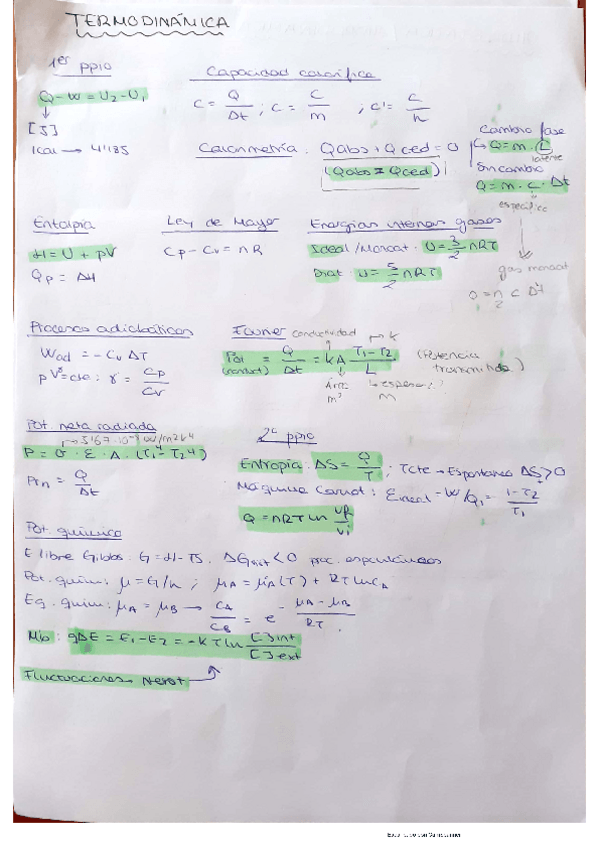 TERMODINÁMICA
1er ppio
Q - W = U2 - U1
[J]
1cal → 4'185
Capacidad calorífica
C = Q/Δt ; c = C/m ; c' = C/n
Calorimetría. Qabs + Qced = 0
(Qabs = Qced)
Cambio fase
Q = m · L
latente
Sin cambio
Q = m · c · Δt
específico
Entalpía
H = U + pV
Qp = ΔH
Ley de Mayer
Cp - Cv = nR
Energías internas gases
Ideal/Monoat. U = 3/2 nRT
Diat. U = 5/2 nRT
gas monoat
Procesos adiabáticos
Wad = - Cv ΔT
pV^γ = cte ; γ = Cp/Cv
Fourier
conductividad → k
Pot (conduct) = Q/Δt = kA T1-T2/L
(Potencia transmitida)
Área m²
espesor
m
Pot. neta radiada
→ 5'67·10⁻⁸ W/m²k⁴
P = σ · ε · A · (T1⁴ - T2⁴)
Ptn = Q/Δt
2º ppio
Entropía. ΔS = Q/T ; Tcte → Espontaneo ΔS > 0
Máquina Carnot : = W/Q1 = 1-T2/T1
Q = nRT ln
Pot. químico
E libre Gibbs. G = H - TS. < 0 proc. espontáneos
Pot. quím: μ = G/n ; μA = μ°A (T) + RT ln CA
Eq. quím: μA = μB → CA/CB = e^ - μA - μB/RT.
Mb : qΔE = E1 - E2 = -kT ln [ ]int/[ ]ext
Fluctuaciones Nerst